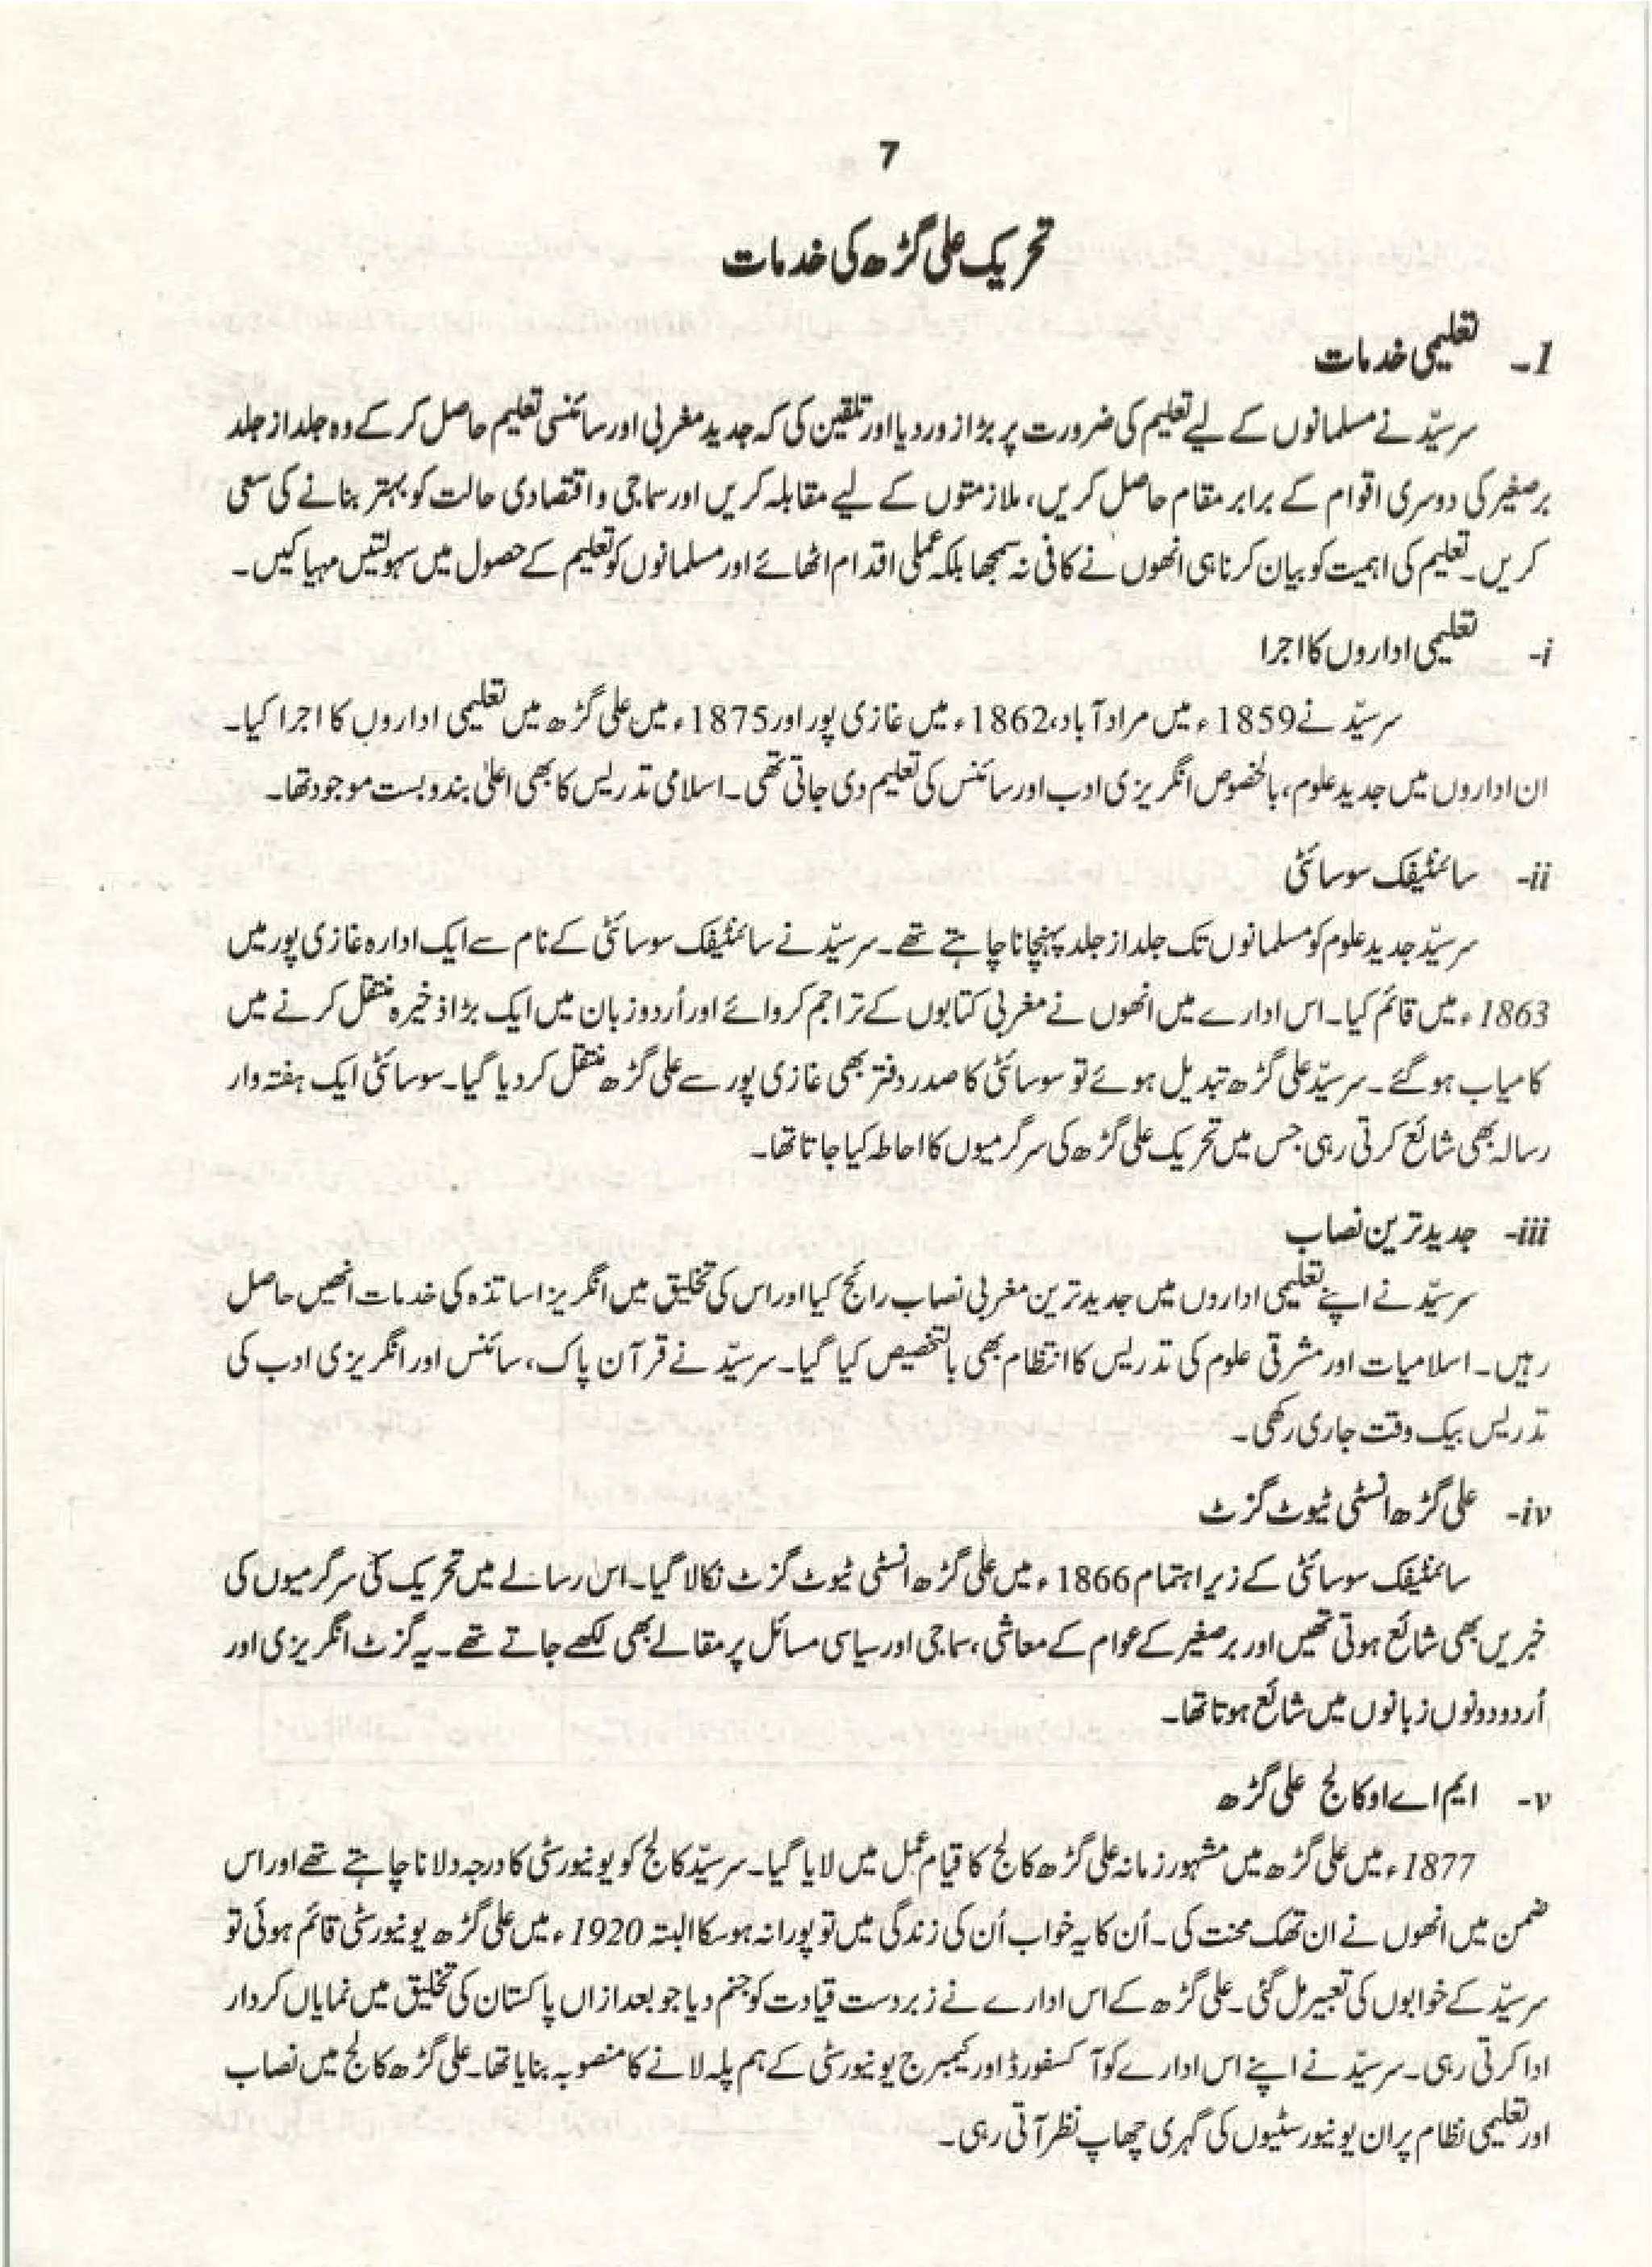 7
تحریک علی گڑھ کی خدمات
1۔ تعلیمی خدمات
سرسیّد نے مسلمانوں کے لیے تعلیم کی ضرورت پر بڑا زور دیا اور تلقین کی کہ جدید مغربی اور سائنسی تعلیم حاصل کر کے وہ جلد از جلد
برصغیر کی دوسری اقوام کے برابر مقام حاصل کریں، ملازمتوں کے لیے مقابلہ کریں اور سماجی و اقتصادی حالت کو بہتر بنانے کی سعی
کریں۔ تعلیم کی اہمیت کو بیان کرنا ہی انھوں نے کافی نہ سمجھا بلکہ عملی اقدام اٹھائے اور مسلمانوں کو تعلیم کے حصول میں سہولتیں مہیا کیں۔
i- تعلیمی اداروں کا اجرا
سرسیّد نے 1859ء میں مراد آباد، 1862ء میں غازی پور اور 1875ء میں علی گڑھ میں تعلیمی اداروں کا اجرا کیا۔
ان اداروں میں جدید علوم، بالخصوص انگریزی ادب اور سائنس کی تعلیم دی جاتی تھی۔ اسلامی تدریس کا بھی اعلیٰ بندوبست موجود تھا۔
ii- سائنٹیفک سوسائٹی
سرسیّد جدید علوم کو مسلمانوں تک جلد از جلد پہنچانا چاہتے تھے۔ سرسیّد نے سائنٹیفک سوسائٹی کے نام سے ایک ادارہ غازی پور میں
1863ء میں قائم کیا۔ اس ادارے میں انھوں نے مغربی کتابوں کے تراجم کروائے اور اُردو زبان میں ایک بڑا ذخیرہ منتقل کرنے میں
کامیاب ہو گئے۔ سرسیّد علی گڑھ تبدیل ہوئے تو سوسائٹی کا صدر دفتر بھی غازی پور سے علی گڑھ منتقل کر دیا گیا۔ سوسائٹی ایک ہفتہ وار
رسالہ بھی شائع کرتی رہی جس میں تحریک علی گڑھ کی سرگرمیوں کا احاطہ کیا جاتا تھا۔
iii- جدید ترین نصاب
سرسیّد نے اپنے تعلیمی اداروں میں جدید ترین مغربی نصاب رائج کیا اور اس کی تخلیق میں انگریز اساتذہ کی خدمات انھیں حاصل
رہیں۔ اسلامیات اور مشرقی علوم کی تدریس کا انتظام بھی بالتخصیص کیا گیا۔ سرسیّد نے قرآن پاک، سائنس اور انگریزی ادب کی
تدریس بیک وقت جاری رکھی۔
iv- علی گڑھ انسٹی ٹیوٹ گزٹ
سائنٹیفک سوسائٹی کے زیر اہتمام 1866ء میں علی گڑھ انسٹی ٹیوٹ گزٹ نکالا گیا۔ اس رسالے میں تحریک کی سرگرمیوں کی
خبریں بھی شائع ہوتی تھیں اور برصغیر کے عوام کے معاشی، سماجی اور سیاسی مسائل پر مقالے بھی لکھے جاتے تھے۔ یہ گزٹ انگریزی اور
اُردو دونوں زبانوں میں شائع ہوتا تھا۔
v- ایم اے او کالج علی گڑھ
1877ء میں علی گڑھ میں مشہور زمانہ علی گڑھ کالج کا قیام عمل میں لایا گیا۔ سرسیّد کالج کو یونیورسٹی کا درجہ دلانا چاہتے تھے اور اس
ضمن میں انھوں نے ان تھک محنت کی۔ اُن کا یہ خواب اُن کی زندگی میں تو پورا نہ ہو سکا البتہ 1920ء میں علی گڑھ یونیورسٹی قائم ہوئی تو
سرسیّد کے خوابوں کی تعبیر مل گئی۔ علی گڑھ کے اس ادارے نے زبردست قیادت کو جنم دیا جو بعد ازاں پاکستان کی تخلیق میں نمایاں کردار
ادا کرتی رہی۔ سرسیّد نے اپنے اس ادارے کو آکسفورڈ اور کیمبرج یونیورسٹی کے ہم پلہ لانے کا منصوبہ بنایا تھا۔ علی گڑھ کالج میں نصاب
اور تعلیمی نظام پر ان یونیورسٹیوں کی گہری چھاپ نظر آتی رہی۔